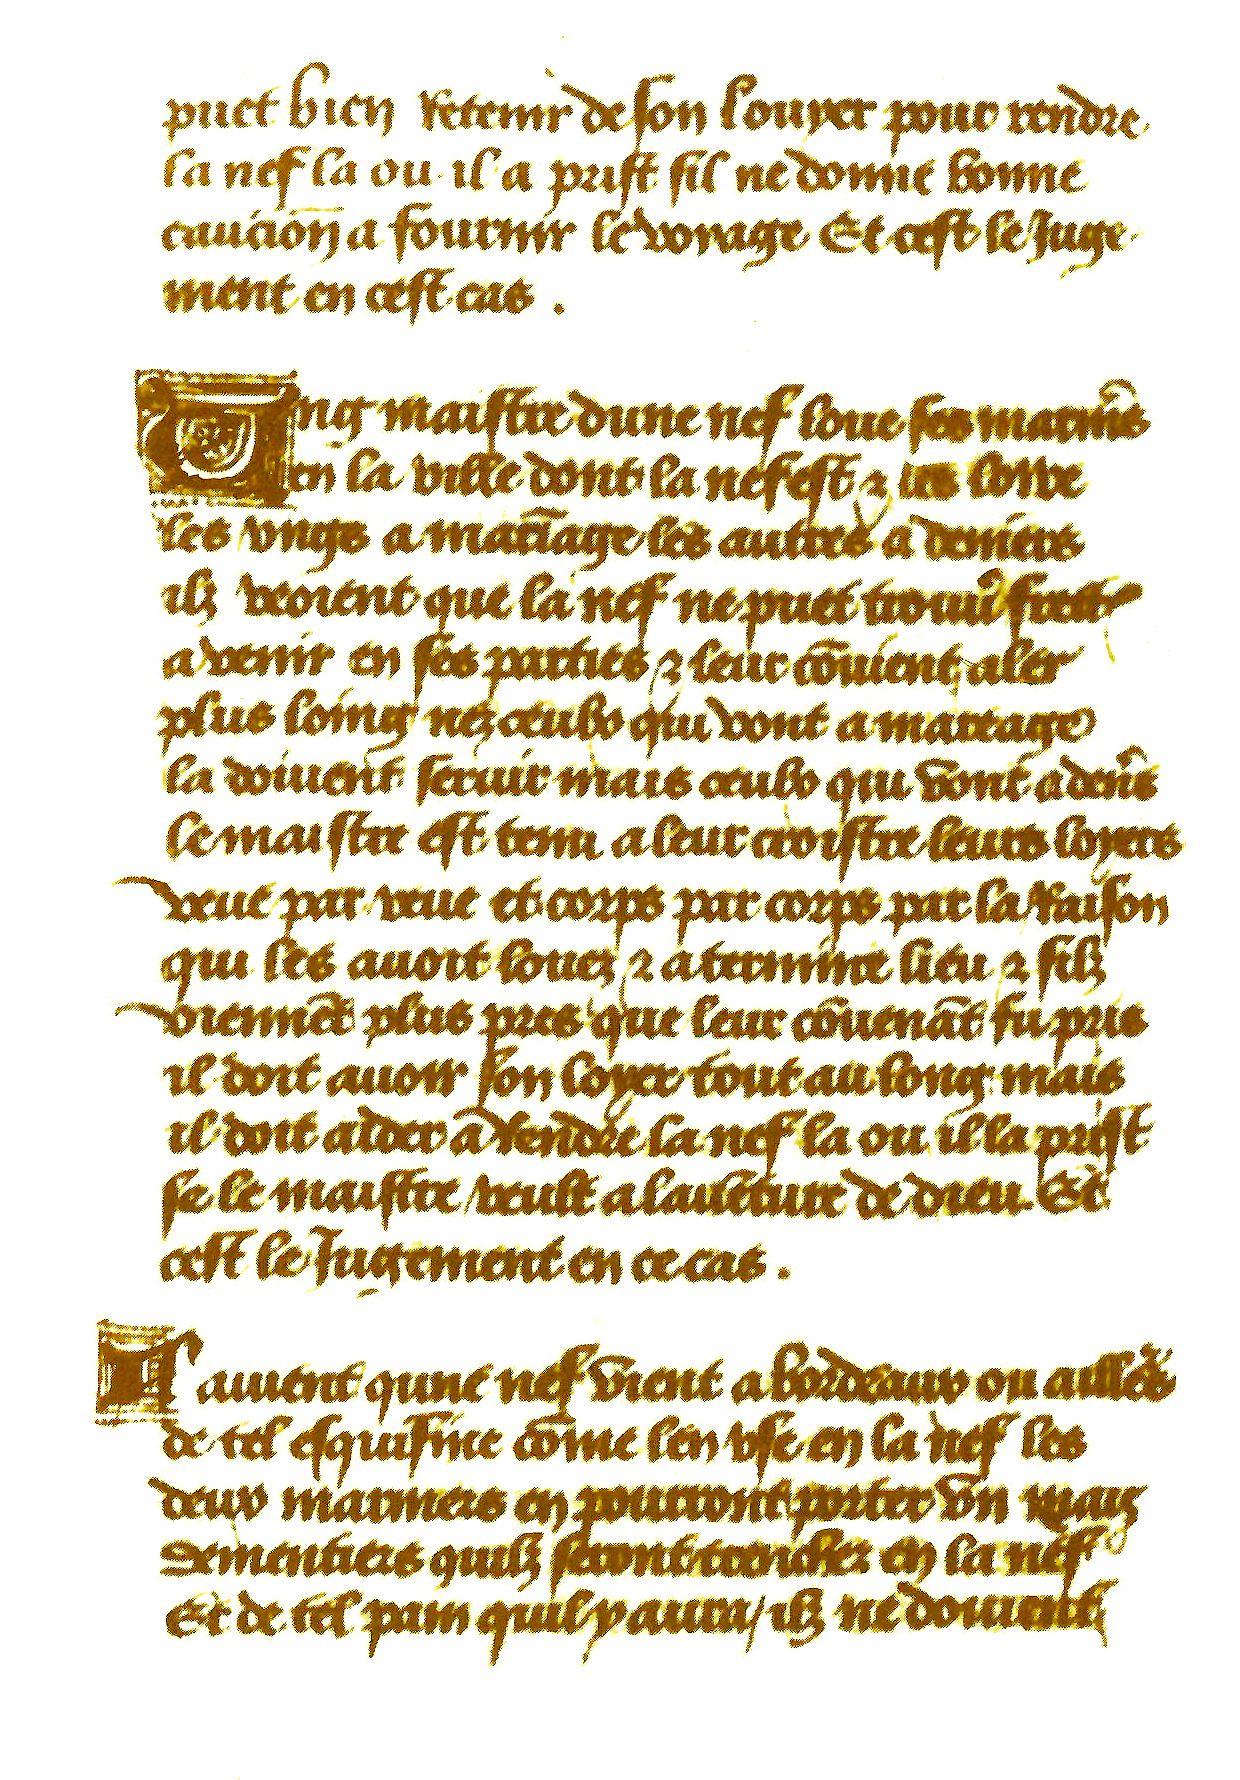 puet bien retenir de son louyer pour rendre
la nef la ou il a prist sil ne donne bonne
caucion a fournir le voyage Et cest le Juge
ment en cest cas .
Ung maistre dune nef loue ses marin̄s
en la ville dont la nef est ⁊ les loue
les ungs a mariage les autres a deniers
ilz veoient que la nef ne puet trouū frett
a venir en ses parties ⁊ leur cōuient aler
plus loing nez ceulx qui vont a mareage
la doiuent seruir mais ceulx qui vont a den̄s
le maistre est tenu a leur croistre leurs loyers
veue par veue et corps par corps par la raison
qui les auoit louez ⁊ a termine lieu ⁊ silz
viennēt plus pres que leur cōuenāt fu pris
il doit auoir son loyer tout au long mais
il doit aider a rendre la nef la ou il la prist
se le maistre veult a lauēture de dieu. Et
cest le Jugement en ce cas .
Il auient qune nef vient a bordeaux ou aille͂s
de tel esquisine cōme len vse en la nef les
deux mariners en pourront porter vn mais
dementiers quilz seront trenchez en la nef
Et de tel pain quil y aura / ilz ne doiuent